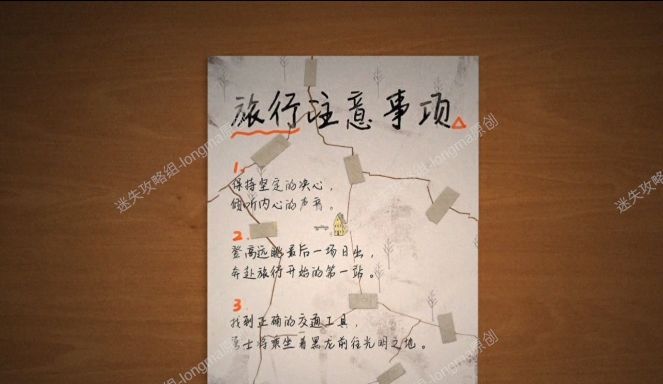 旅行注意事项
1.
保持坚定的决心，
倾听内心的声音。
2.
登高远眺最后一场日出，
奔赴旅行开始的第一站。
3
找到正确的交通工具，
勇士将乘坐着黑龙前往光明之地。
迷失攻略组-longma原创
迷失攻略组-longma原创
迷失攻略组-longma原创
迷失攻略组-longma原创